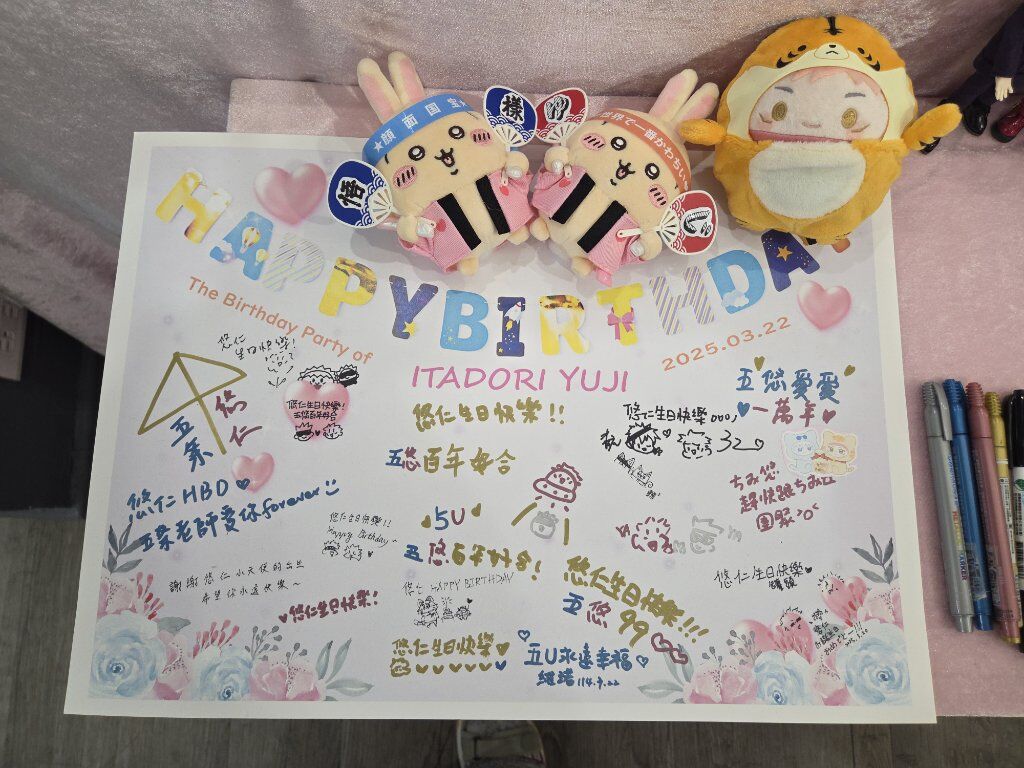 ★顔面国宝
悟
様
世界で一番かわちい
じ
HAPPY BIRTHDAY
The Birthday Party of
2025.03.22
ITADORI YUJI
悠仁
生日快樂!
五条
悠仁
悠仁生日快樂!
五悠百年好合
悠仁生日快樂!!
五悠百年好合
悠仁生日快樂
五悠愛愛
一萬年
悠仁 HBD
五条老師愛你forever
悠仁生日快樂!!
Happy Birthday~
5U
五悠百年好合!
ちみ悠
趕快跟ちみ五
團聚
謝謝悠仁小天使的出生
希望你永遠快樂~
悠仁生日快樂!
悠仁 HAPPY BIRTHDAY
悠仁生日快樂!!!
五悠
99
悠仁生日快樂
悠仁生日快樂
五U永遠幸福
114.3.22